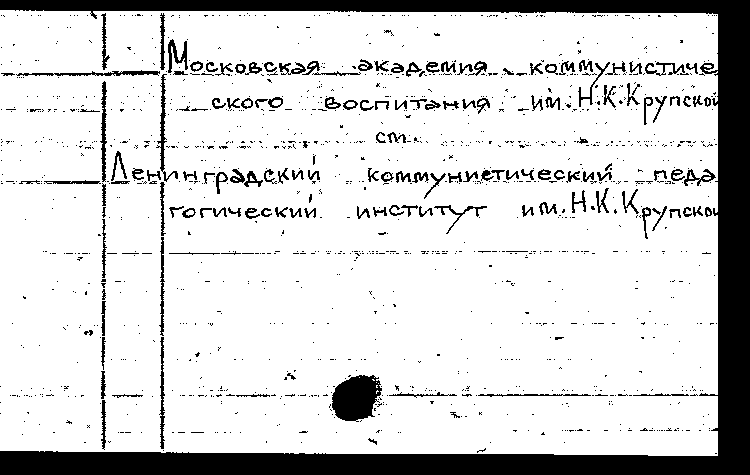 Московская академия коммунистиче
ского воспитания им. Н.К.Крупской
ст.
Ленинградский коммунистический педа
гогический институт им. Н.К.Крупской